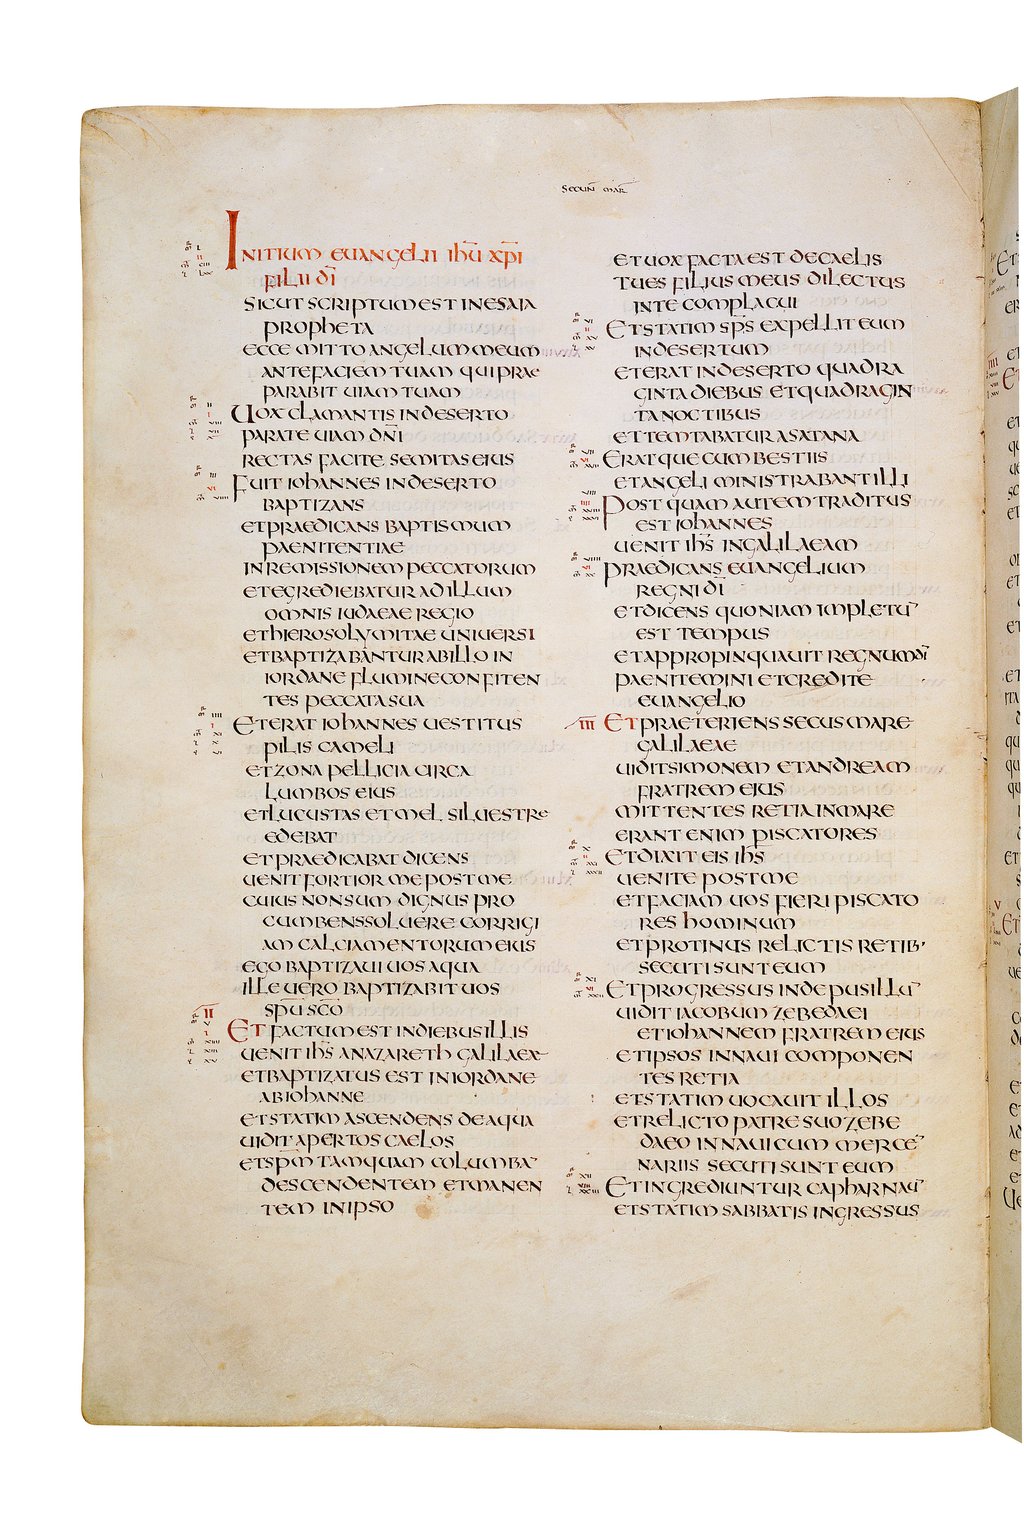 SECUN MAR
INITIUM EUANGELII IHU XPI
FILII DI
SICUT SCRIPTUM EST IN ESAIA
PROPHETA
ECCE MITTO ANGELUM MEUM
ANTE FACIEM TUAM QUI PRAE
PARABIT UIAM TUAM
UOX CLAMANTIS IN DESERTO
PARATE UIAM DNI
RECTAS FACITE SEMITAS EIUS
FUIT IOHANNES IN DESERTO
BAPTIZANS
ET PRAEDICANS BAPTISMUM
PAENITENTIAE
IN REMISSIONEM PECCATORUM
ET EGREDIEBATUR AD ILLUM
OMNIS IUDAEAE REGIO
ET HIEROSOLYMITAE UNIUERSI
ET BAPTIZABANTUR AB ILLO IN
IORDANE FLUMINE CONFITEN
TES PECCATA SUA
ET ERAT IOHANNES UESTITUS
PILIS CAMELI
ET ZONA PELLICIA CIRCA
LUMBOS EIUS
ET LUCUSTAS ET MEL SILUESTRE
EDEBAT
ET PRAEDICABAT DICENS
UENIT FORTIOR ME POST ME
CUIUS NON SUM DIGNUS PRO
CUMBENS SOLUERE CORRIGI
AM CALCIAMENTORUM EIUS
EGO BAPTIZAUI UOS AQUA
ILLE UERO BAPTIZABIT UOS
SPU SCO
II ET FACTUM EST IN DIEBUS ILLIS
UENIT IHS A NAZARETH GALILAEAE
ET BAPTIZATUS EST IN IORDANE
AB IOHANNE
ET STATIM ASCENDENS DE AQUA
UIDIT APERTOS CAELOS
ET SPM TAMQUAM COLUMBA
DESCENDENTEM ET MANEN
TEM IN IPSO
ET UOX FACTA EST DE CAELIS
TU ES FILIUS MEUS DILECTUS
IN TE COMPLACUI
ET STATIM SPS EXPELLIT EUM
IN DESERTUM
ET ERAT IN DESERTO QUADRA
GINTA DIEBUS ET QUADRAGIN
TA NOCTIBUS
ET TEMTABATUR A SATANA
ERATQUE CUM BESTIIS
ET ANGELI MINISTRABANT ILLI
POST QUAM AUTEM TRADITUS
EST IOHANNES
UENIT IHS IN GALILAEAM
PRAEDICANS EUANGELIUM
REGNI DI
ET DICENS QUONIAM IMPLETU
EST TEMPUS
ET APPROPINQUAUIT REGNUM DI
PAENITEMINI ET CREDITE
EUANGELIO
III ET PRAETERIENS SECUS MARE
GALILAEAE
UIDIT SIMONEM ET ANDREAM
FRATREM EIUS
MITTENTES RETIA IN MARE
ERANT ENIM PISCATORES
ET DIXIT EIS IHS
UENITE POST ME
ET FACIAM UOS FIERI PISCATO
RES HOMINUM
ET PROTINUS RELICTIS RETIB
SECUTI SUNT EUM
ET PROGRESSUS INDE PUSILLU
UIDIT IACOBUM ZEBEDAEI
ET IOHANNEM FRATREM EIUS
ET IPSOS IN NAUI COMPONEN
TES RETIA
ET STATIM UOCAUIT ILLOS
ET RELICTO PATRE SUO ZEBE
DAEO IN NAUI CUM MERCE
NARIIS SECUTI SUNT EUM
ET INGREDIUNTUR CAPHARNAU
ET STATIM SABBATIS INGRESSUS